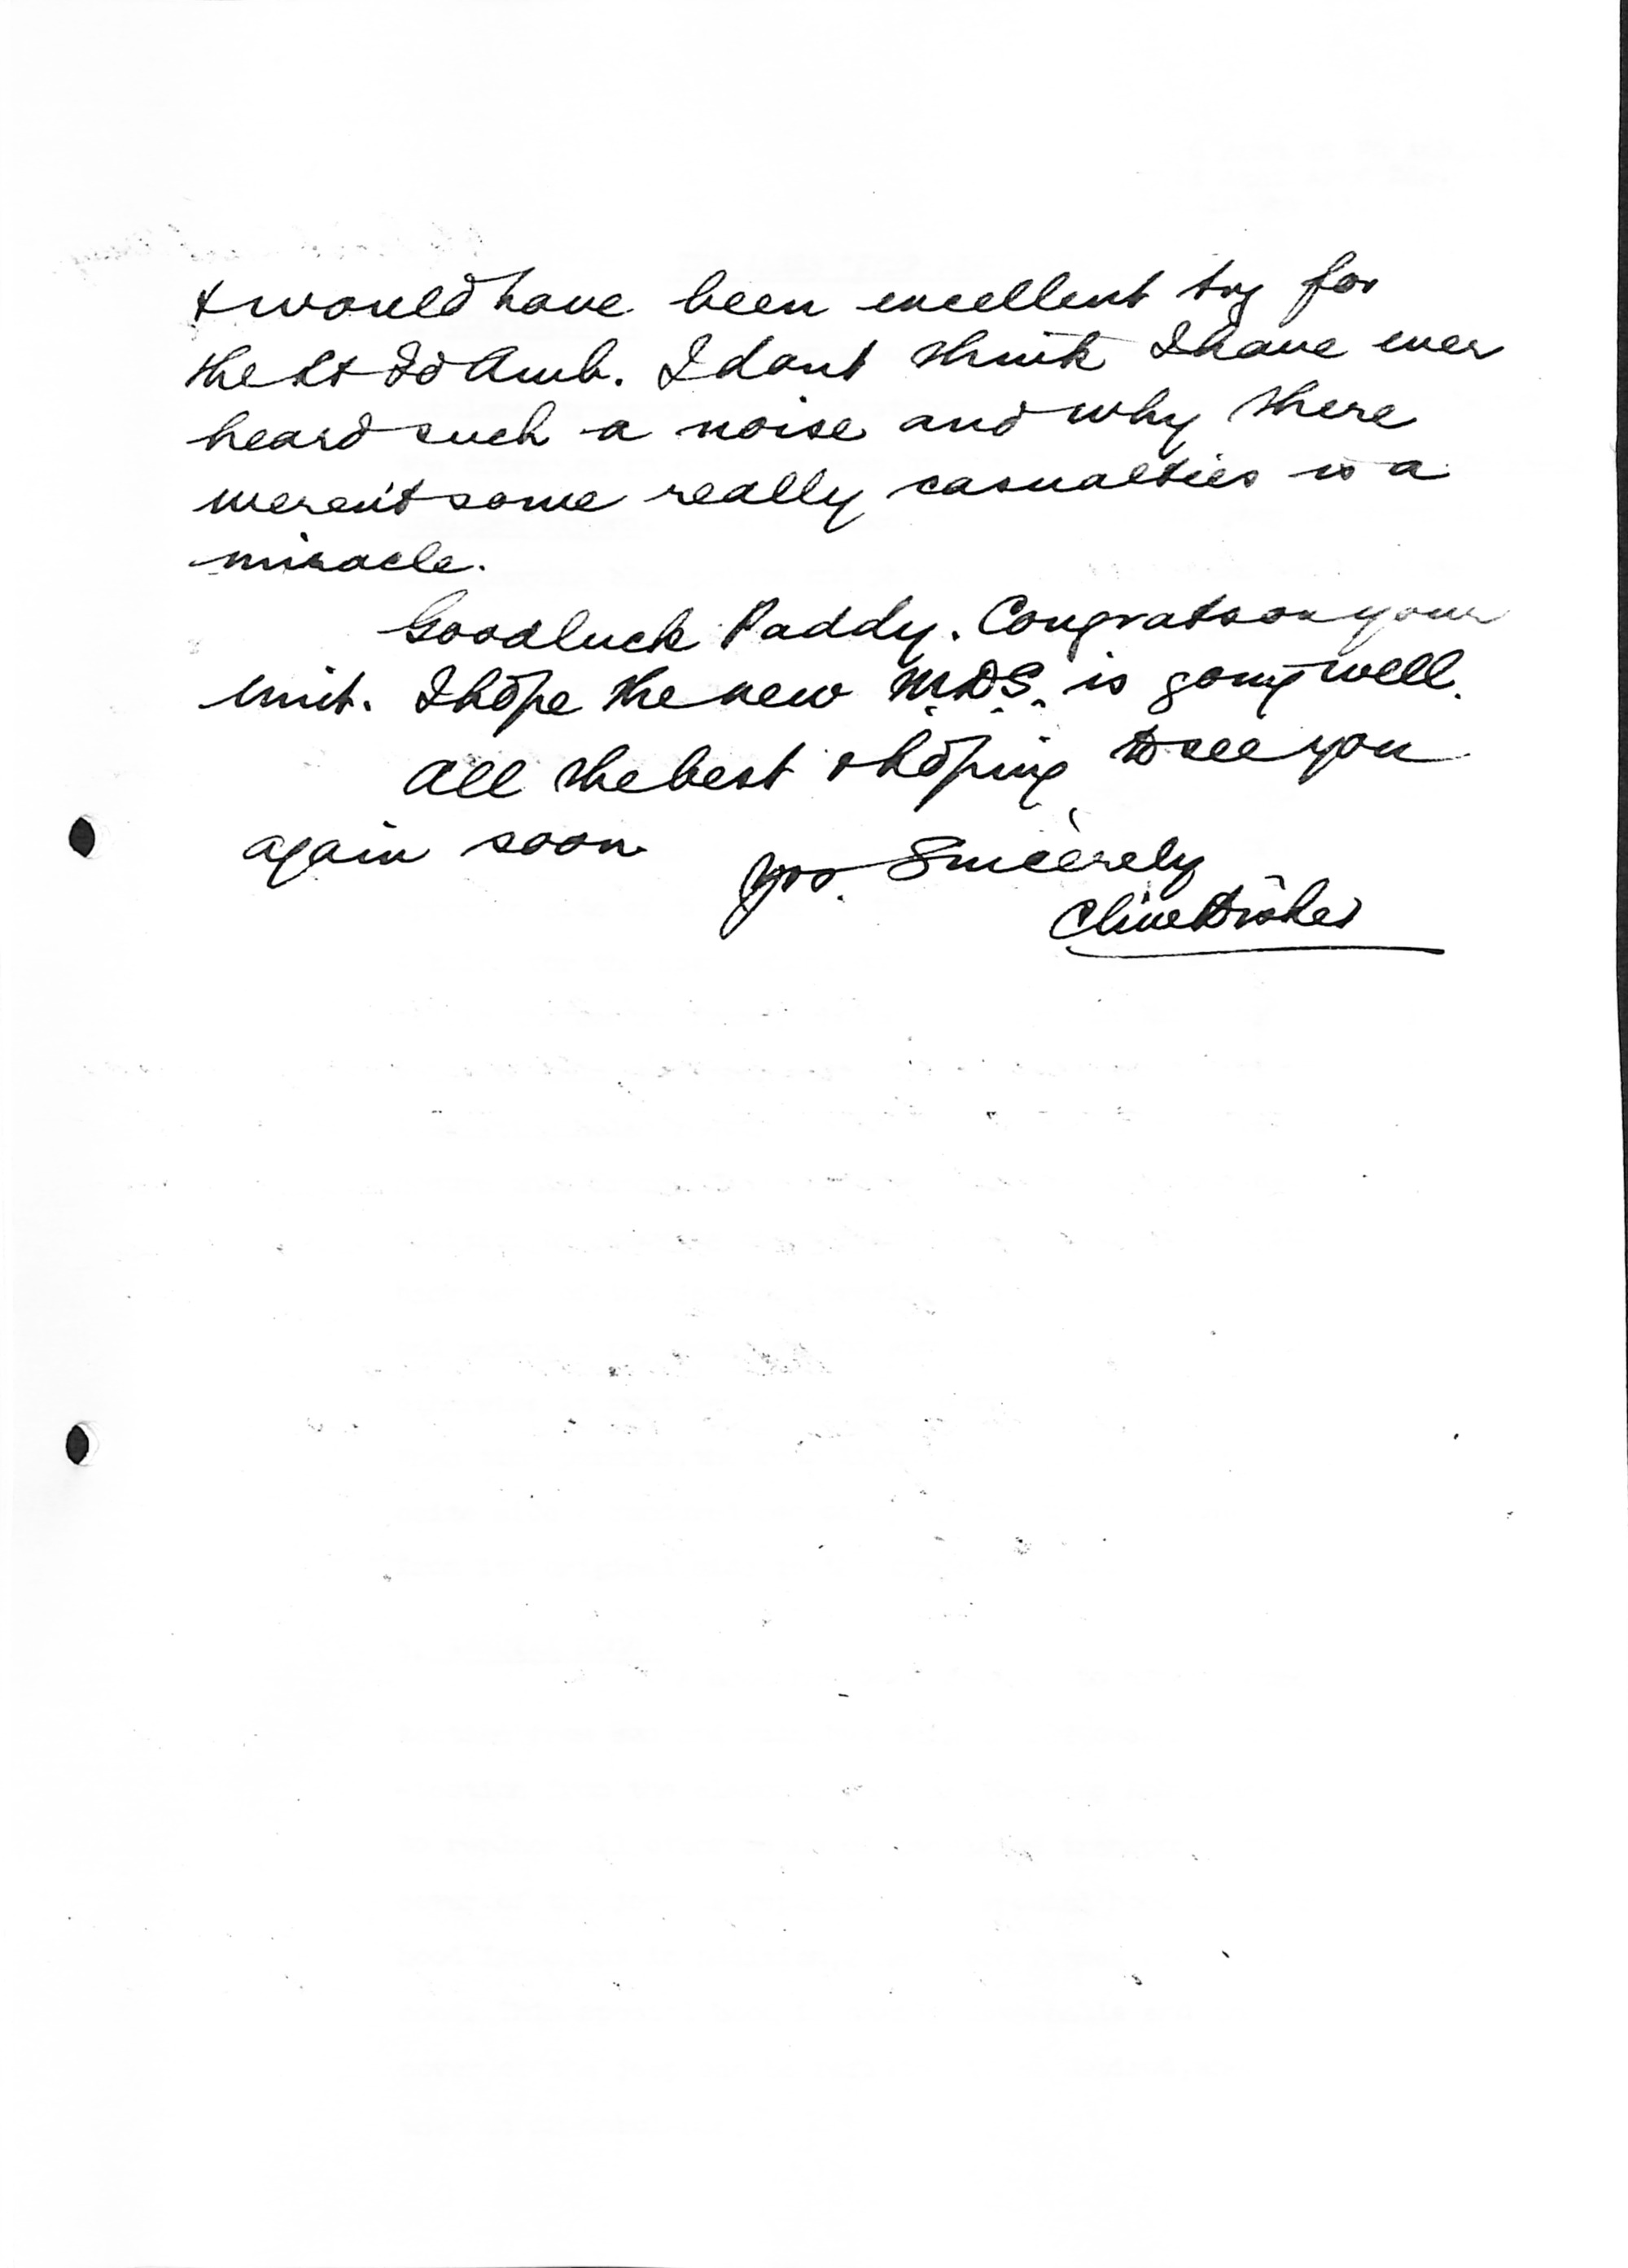 & would have been excellent trg for
the Lt Fd Amb. I dont think I have ever
heard such a noise and why there
weren't some really casualties is a
miracle.
Good luck Paddy. Congrats on your
unit. I hope the new M.D.S. is going well.
All the best & hoping to see you
again soon
Yrs. Sincerely
Clive Disher